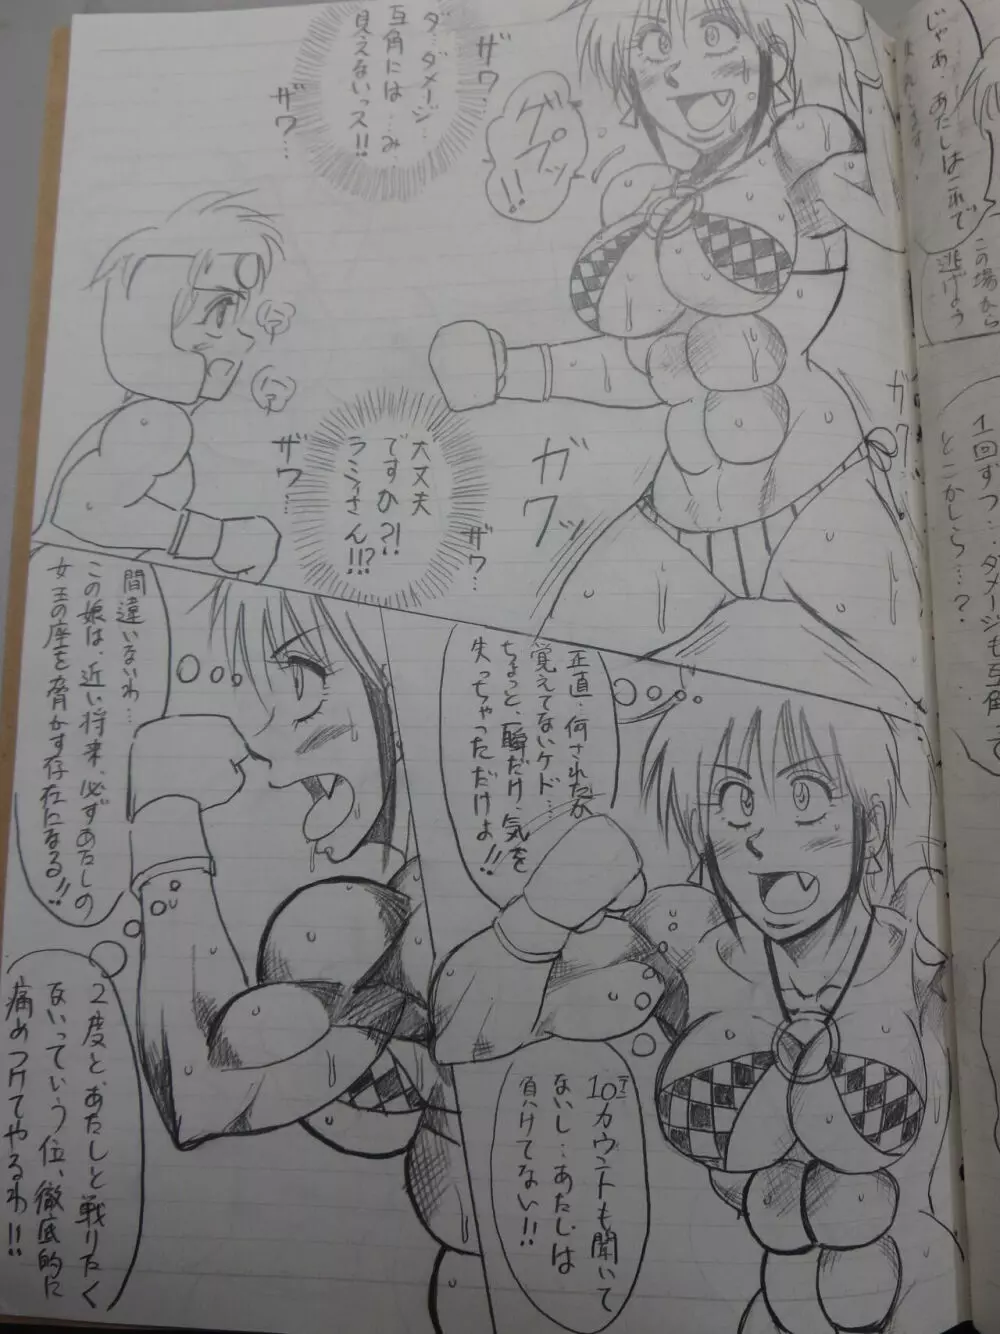 じゃぁ、あたしはこれで
この場から
逃げよう
1回ずつ…ダメージも互角って
とこかしら…?
ダ…ダメージ…
互角には…み
見えないっス!!
ザワ…
ザワ…
グプッ!!
大丈夫
ですか?!
ラミィさん!!?
ザワ…
ザワ…
ガワッ
ガワッ
正直、何されたか
覚えてないケド……
ちょっと、一瞬だけ、気を
失っちゃっただけよ!!
10カウントも聞いて
ないし…あたしは
負けてない!!
間違いないわ…
この娘は、近い将来、必ずあたしの
女王の座を脅かす存在になる!!
2度と、あたしと戦りたく
ないっていう位、徹底的に
痛めつけてやるわ!!